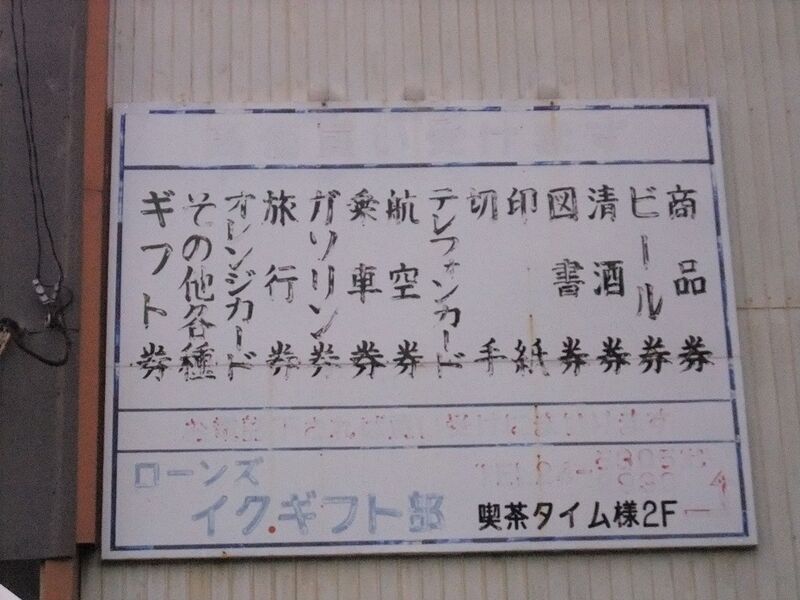 商品券
ビール券
清酒券
図書券
印紙
切手
テレフォンカード
航空券
乗車券
ガソリン券
旅行券
オレンジカード
その他各種
ギフト券
ローンズ
イク.ギフト部
喫茶タイム様2F